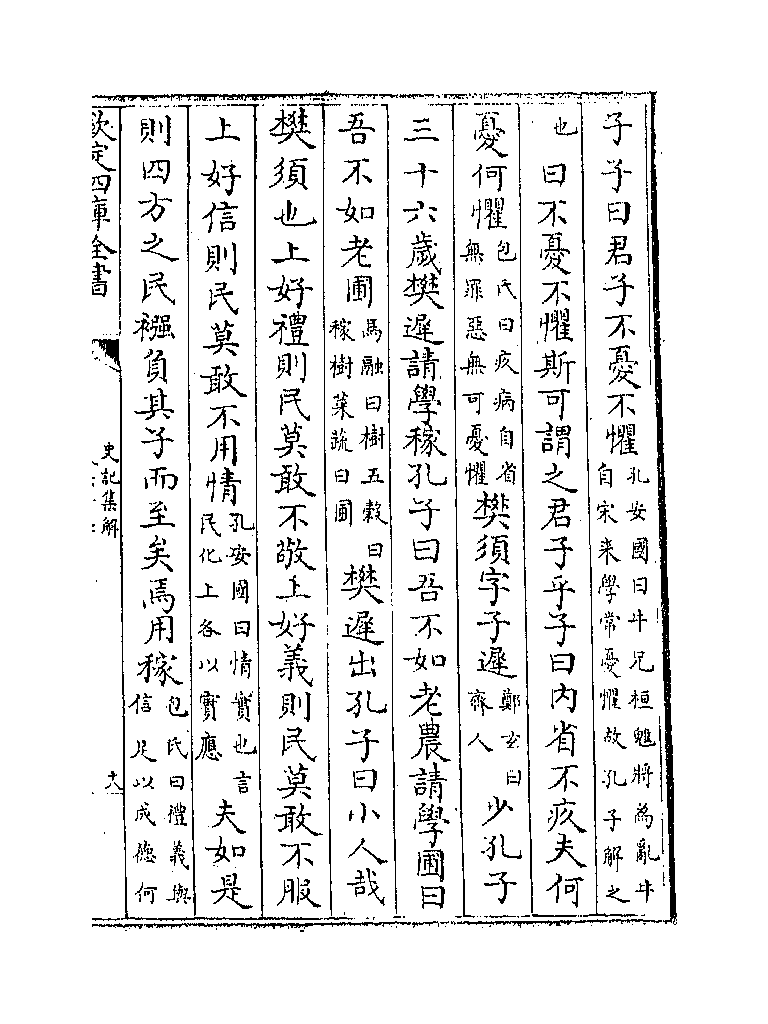 子子曰君子不憂不懼孔安國曰牛兄桓魋將為亂牛自宋來學常憂懼故孔子解之
也曰不憂不懼斯可謂之君子乎子曰內省不疚夫何
憂何懼包氏曰疚病自省無罪惡無可憂懼樊須字子遲鄭玄曰齊人少孔子
三十六歲樊遲請學稼孔子曰吾不如老農請學圃曰
吾不如老圃馬融曰樹五穀曰稼樹菜蔬曰圃樊遲出孔子曰小人哉
樊須也上好禮則民莫敢不敬上好義則民莫敢不服
上好信則民莫敢不用情孔安國曰情實也言民化上各以實應夫如是
則四方之民襁負其子而至矣焉用稼包氏曰禮義與信足以成德何
欽定四庫全書
史記集解
十八